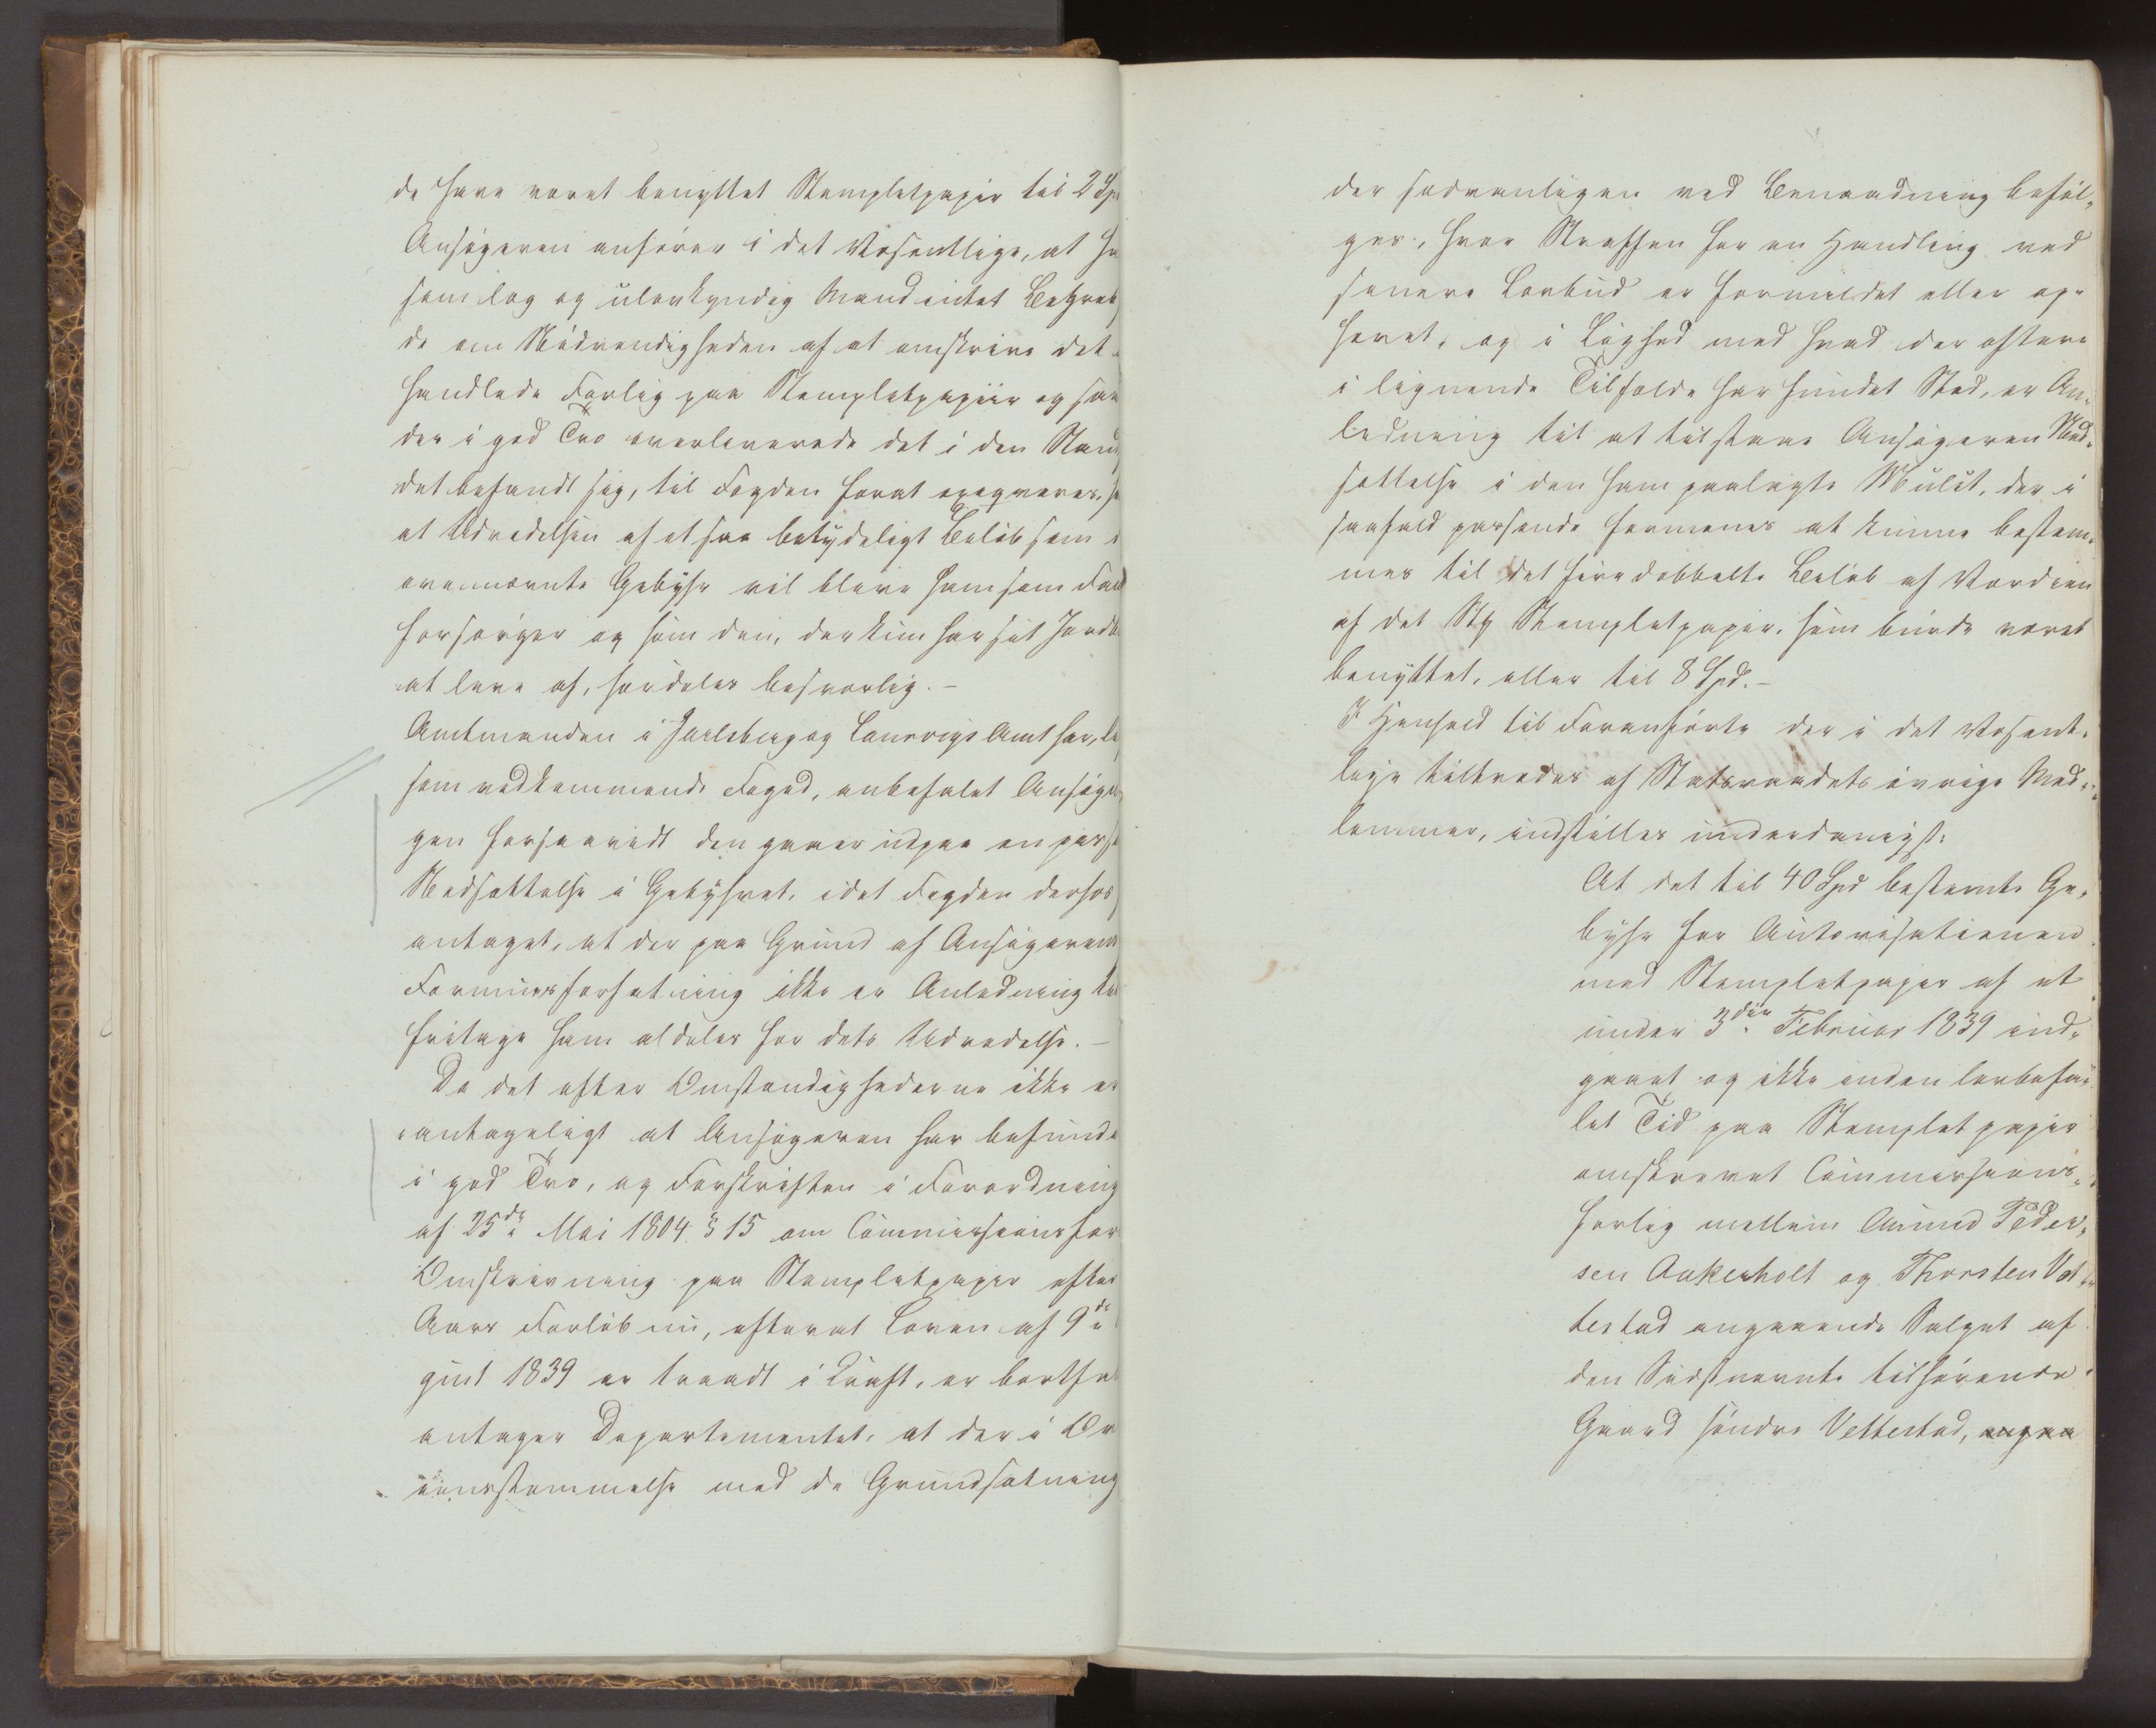 de have været benyttet Stempletpapir til 2 Spd
Ansøgeren anfører i det Væsentlige, at ha
som læg og ulovkyndig Mand intet Begreb
de om Nødvendigheden af at omskrive det
handlede Forlig paa Stempletpapiir og saa
der i god Tro overleverede det i den Stand
det befandt sig, til Fogden forat exeqveres,
at Udredelsen af et saa betydeligt Beløb som
ovennævnte Gebyhr vil blive ham som Fa
forsørger og som den, der kun har sit Jordb
at leve af, særdeles besværlig. —
Amtmanden i Jarlsberg og Laurvigs Amt har, li
som vedkommende Foged, anbefalet Ansøg
gen forsaavidt den gaaer udpaa en pass
Nedsættelse i Gebyhret, idet Fogden derhos
antaget, at der paa Grund af Ansøgerens
Formuesforfatning ikke er Anledning til
fritage ham aldeles for dets Udredelse. —
Da det efter Omstændighederne ikke er
uantageligt at Ansøgeren har befunde
i god Tro, og Forskriften i Forordning
af 25de Mai 1804 § 15 om Commissionsfor
Omskrivning paa Stempletpapir efter
Aars Forløb nu, efterat Loven af 9de
gust 1839 er traadt i Kraft, er bortfal
antager Departementet, at der i Ov
eensstemmelse med de Grundsætning
der sædvanligen ved Benaadning beføl-
ges, hvor Straffen for en Handling ved
senere Lovbud er formildet eller op-
hævet, og i Lighed med hvad der oftere
i lignende Tilfælde har fundet Sted, er An-
ledning til at tilstaae Ansøgeren Ned-
sættelse i den ham paalagte Mulct, der i
saafald passende formenes at kunne bestem-
mes til det firedobbelte Beløb af Værdien
af det Stp Stempletpapir, som burde været
benyttet, eller til 8 Spd. —
I Henhold til Foranførte der i det Væsent-
lige tiltrædes af Statsraadets øvrige Med-
lemmer, indstilles underdanigst:
At det til 40 Spd bestemte Ge-
byhr for Autorisationen
med Stempletpapir af et
under 3die Februar 1839 ind-
gaaet og ikke inden lovbefa-
let Tid paa Stemplet papir
omskrevet Commissions-
forlig mellem Amund Peder-
sen Aakerholt og Thorsten Vet-
testad angaaende Salget af
den Sidstnævnte tilhørende
Gaard søndre Vettestad, angaa